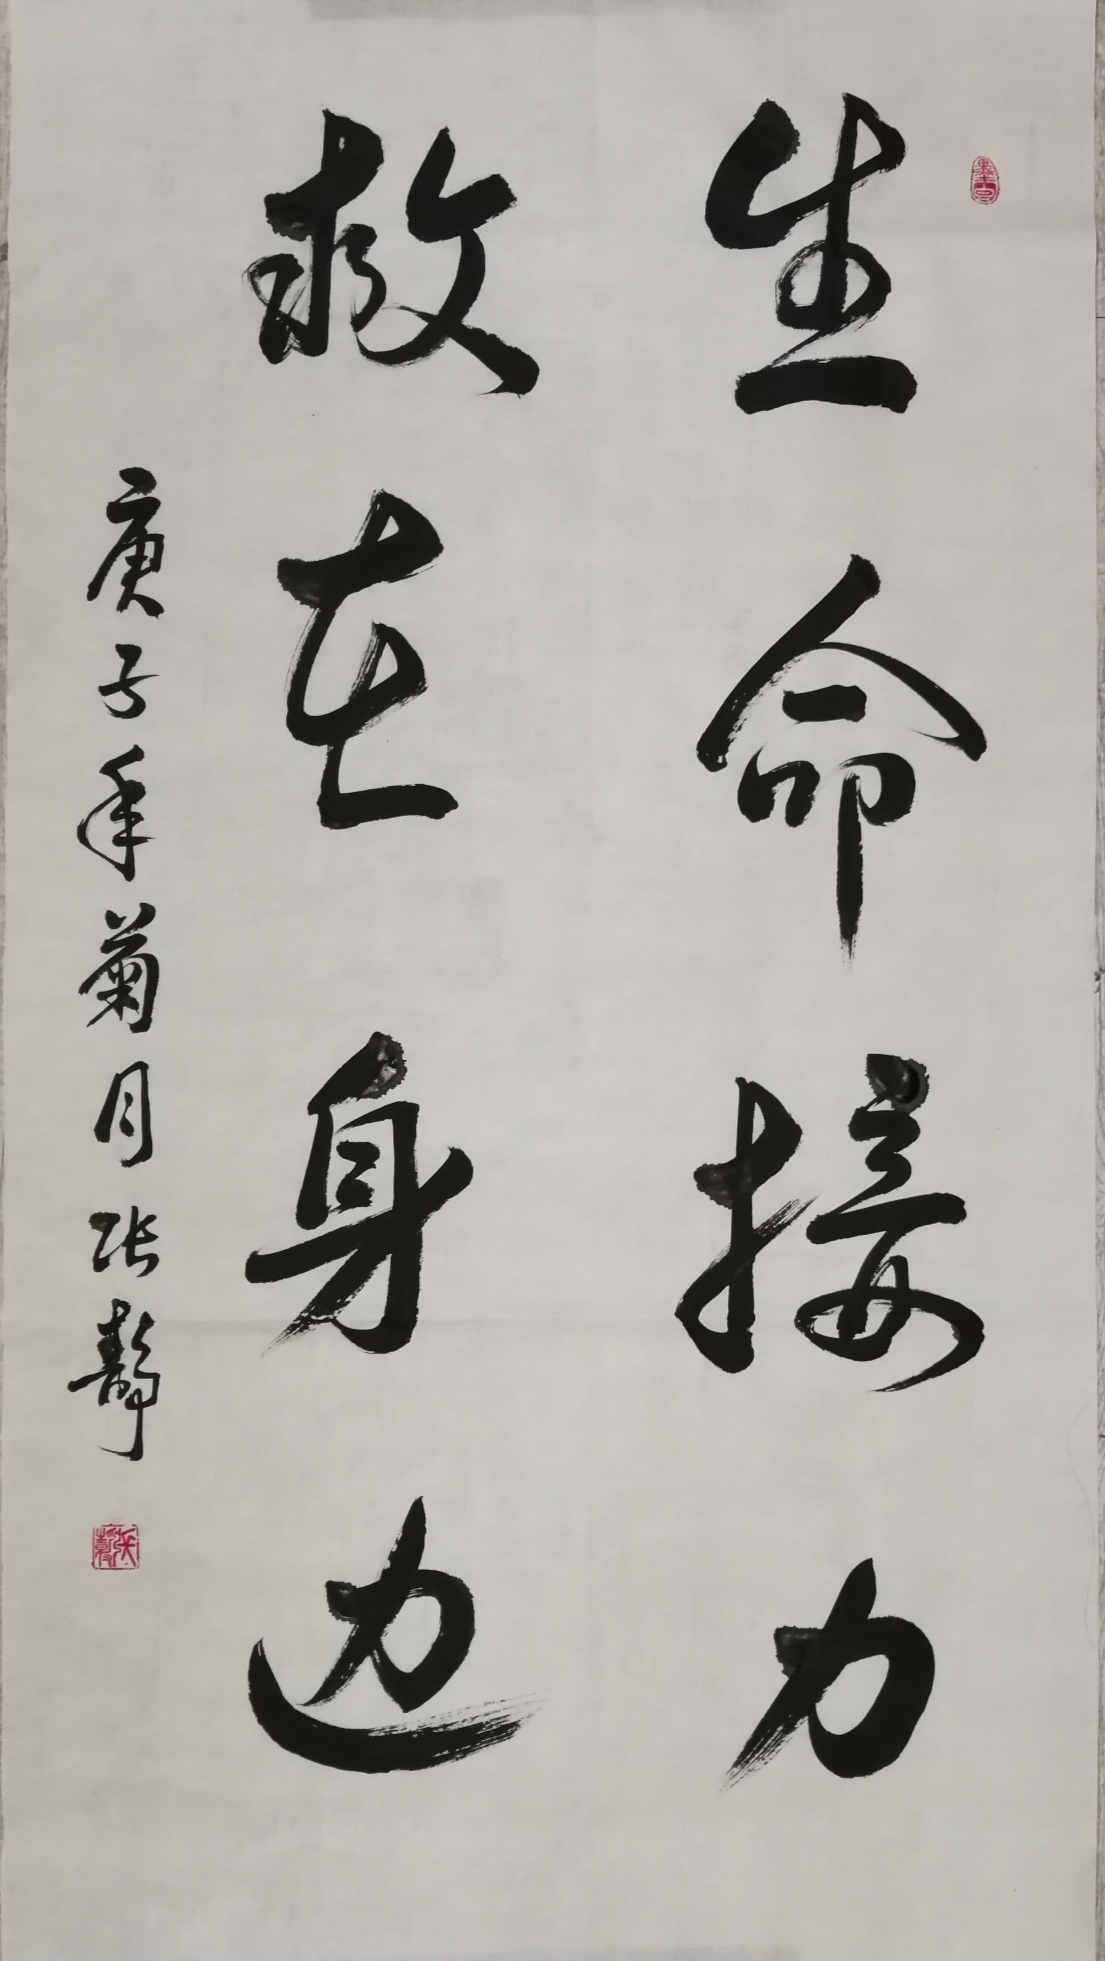 生命接力
救在身边
庚子年菊月张静